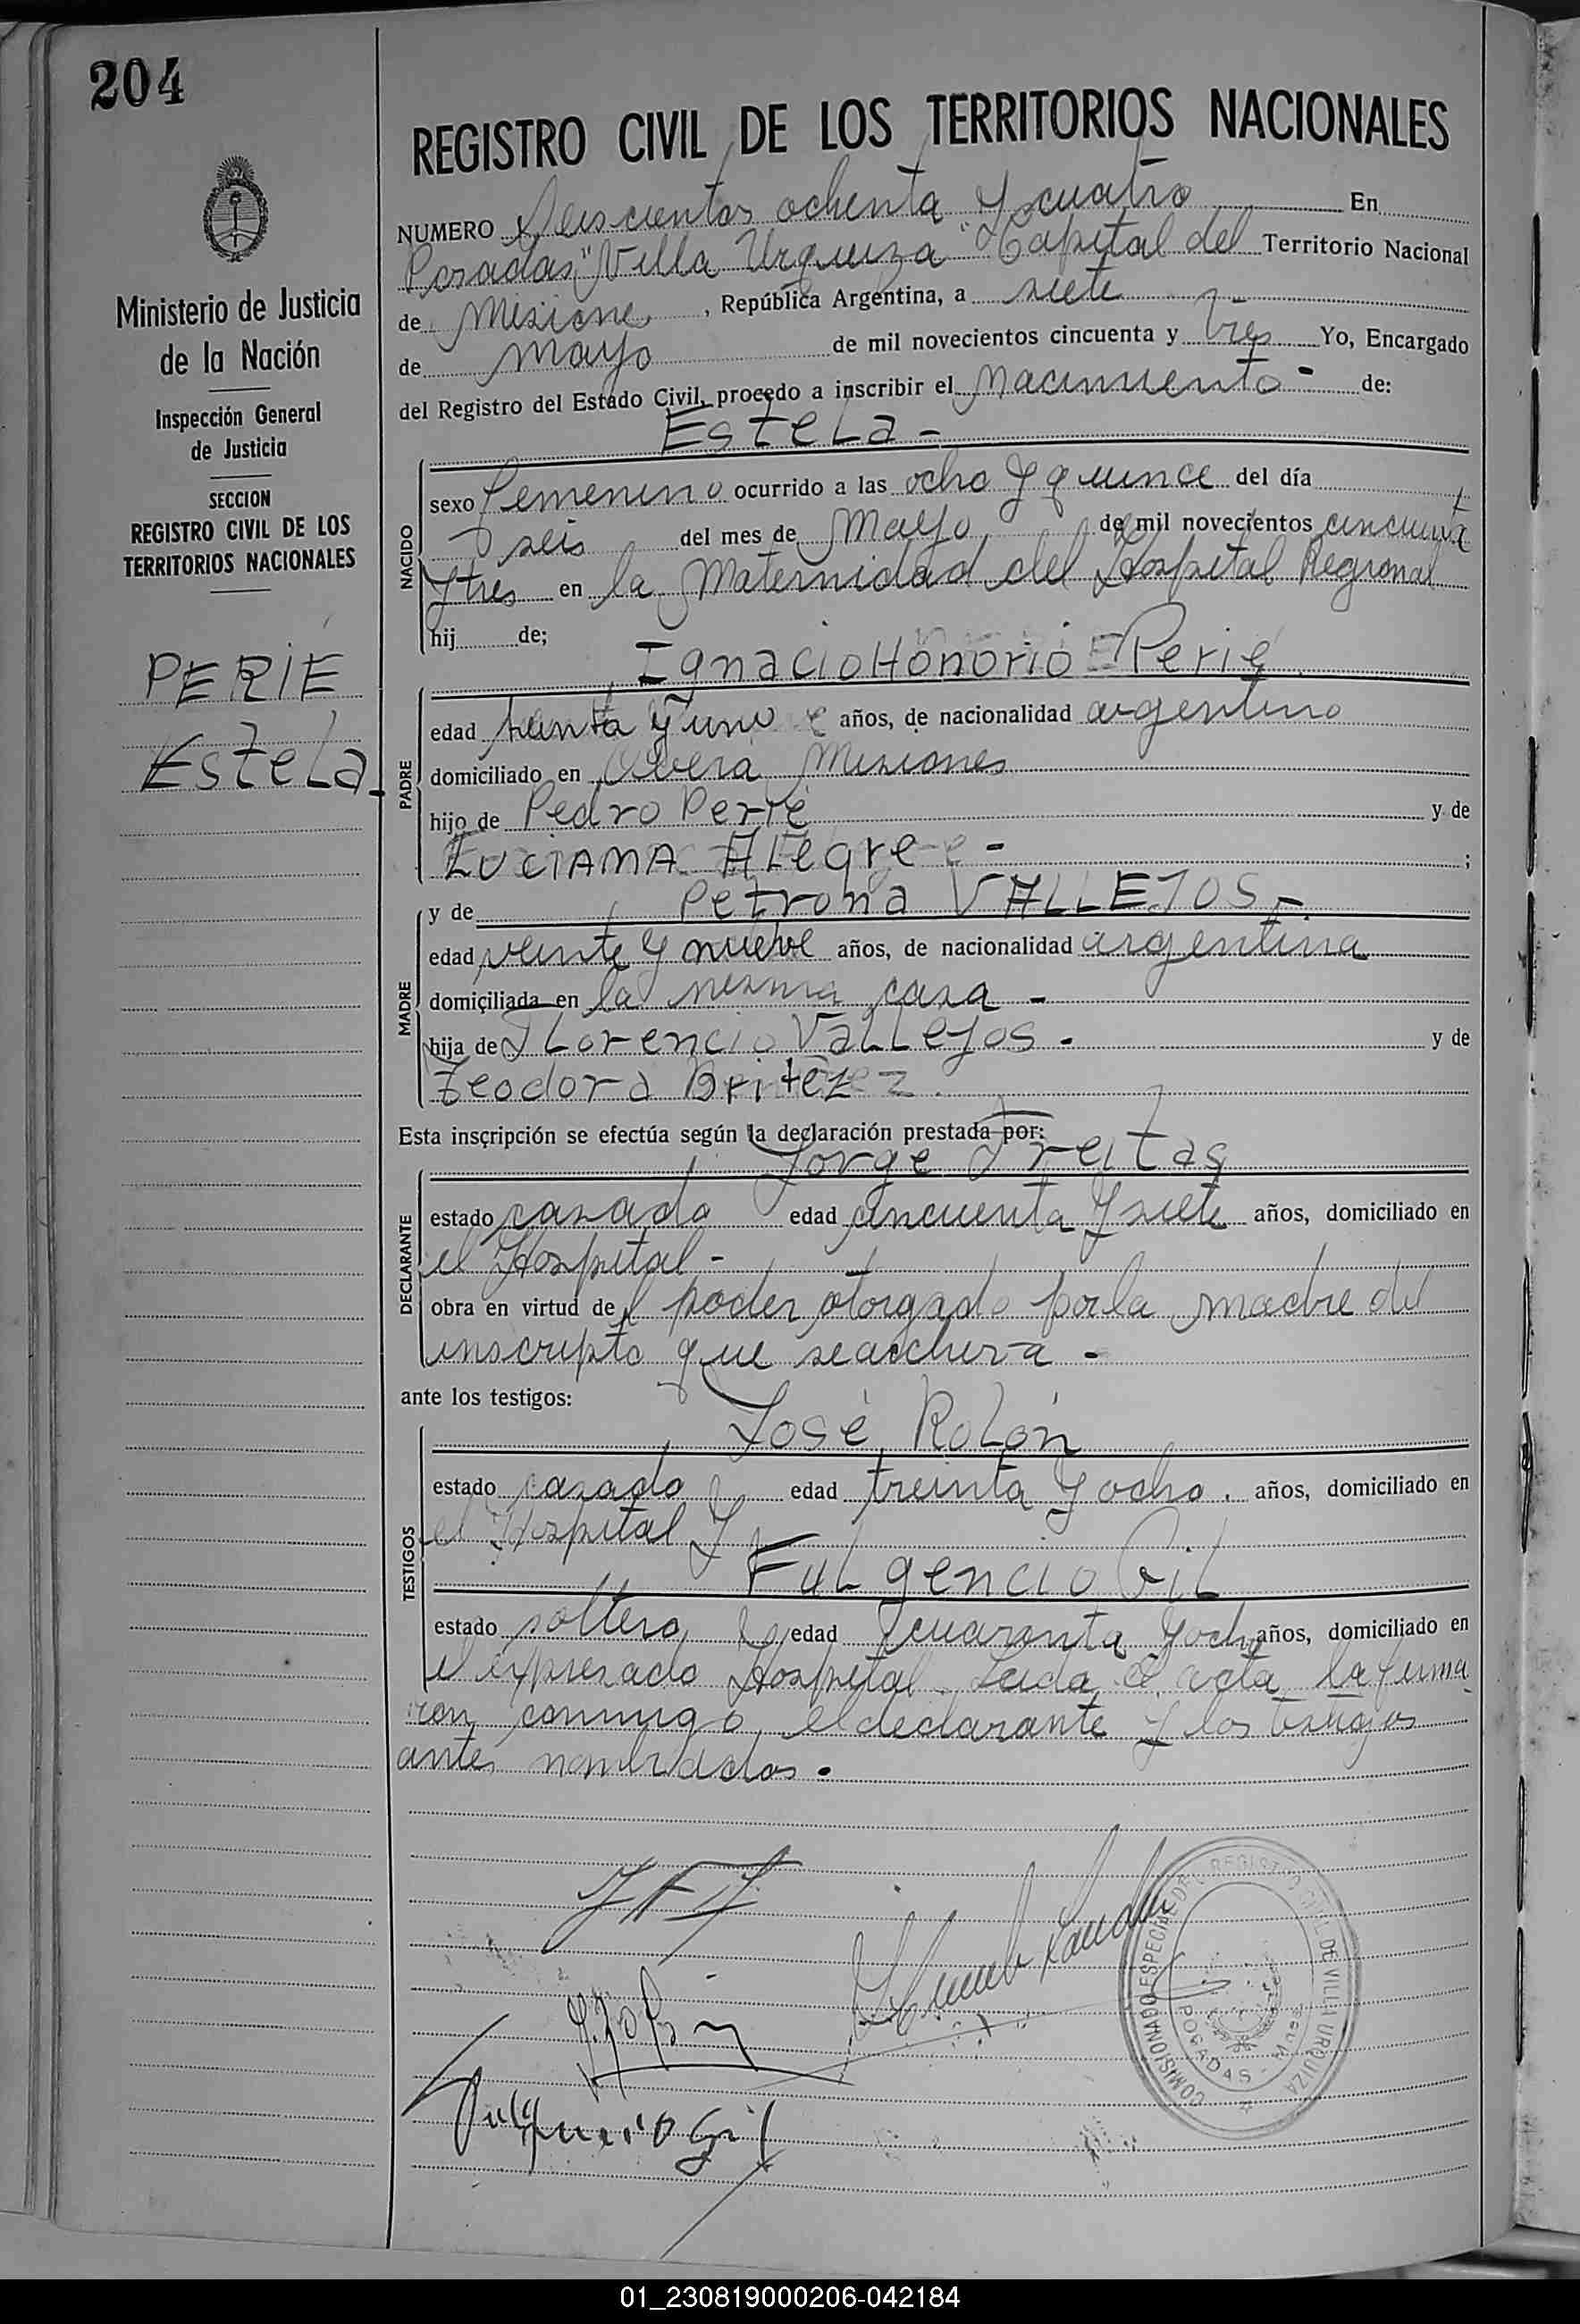 204
Ministerio de Justicia
de la Nación
Inspección General
de Justicia
SECCION
REGISTRO CIVIL DE LOS
TERRITORIOS NACIONALES
PERIÉ
Estela.
REGISTRO CIVIL DE LOS TERRITORIOS NACIONALES
NUMERO Seiscientos ochenta y cuatro En
Posadas, "Villa Urquiza" Capital del Territorio Nacional
de Misiones, República Argentina, a siete
de mayo de mil novecientos cincuenta y tres Yo, Encargado
del Registro del Estado Civil, procedo a inscribir el Nacimiento - de:
Estela -
NACIDO
sexo femenino ocurrido a las ocho y quince del día
seis del mes de Mayo de mil novecientos cincuenta
y tres en la Maternidad del Hospital Regional
hij de;
Ignacio Honorio Perié
PADRE
edad treinta y uno años, de nacionalidad argentino
domiciliado en Oberá Misiones
hijo de Pedro Perié y de
LUCIANA Alegre - ;
y de Petrona VALLEJOS.-
MADRE
edad veinte y nueve años, de nacionalidad argentina
domiciliada en la misma casa -
hija de Florencio Vallejos. y de
Teodora Britez
Esta inscripción se efectúa según la declaración prestada por:
Jorge Freitas
DECLARANTE
estado casado edad cincuenta y siete años, domiciliado en
el Hospital -
obra en virtud del poder otorgado por la madre del
inscripto que se archiva -
ante los testigos:
José Rolón
TESTIGOS
estado casado edad treinta y ocho. años, domiciliado en
el Hospital y
Fulgencio Gil
estado soltero, edad cuarenta y ocho años, domiciliado en
el expresado Hospital. Leida el acta la firma
ron conmigo, el declarante y los testigos
antes nombrados.
Fulgencio Gil
COMISIONADO ESPECIAL DEL REGISTRO CIVIL DE VILLA URQUIZA
POSADAS -
01_230819000206-042184